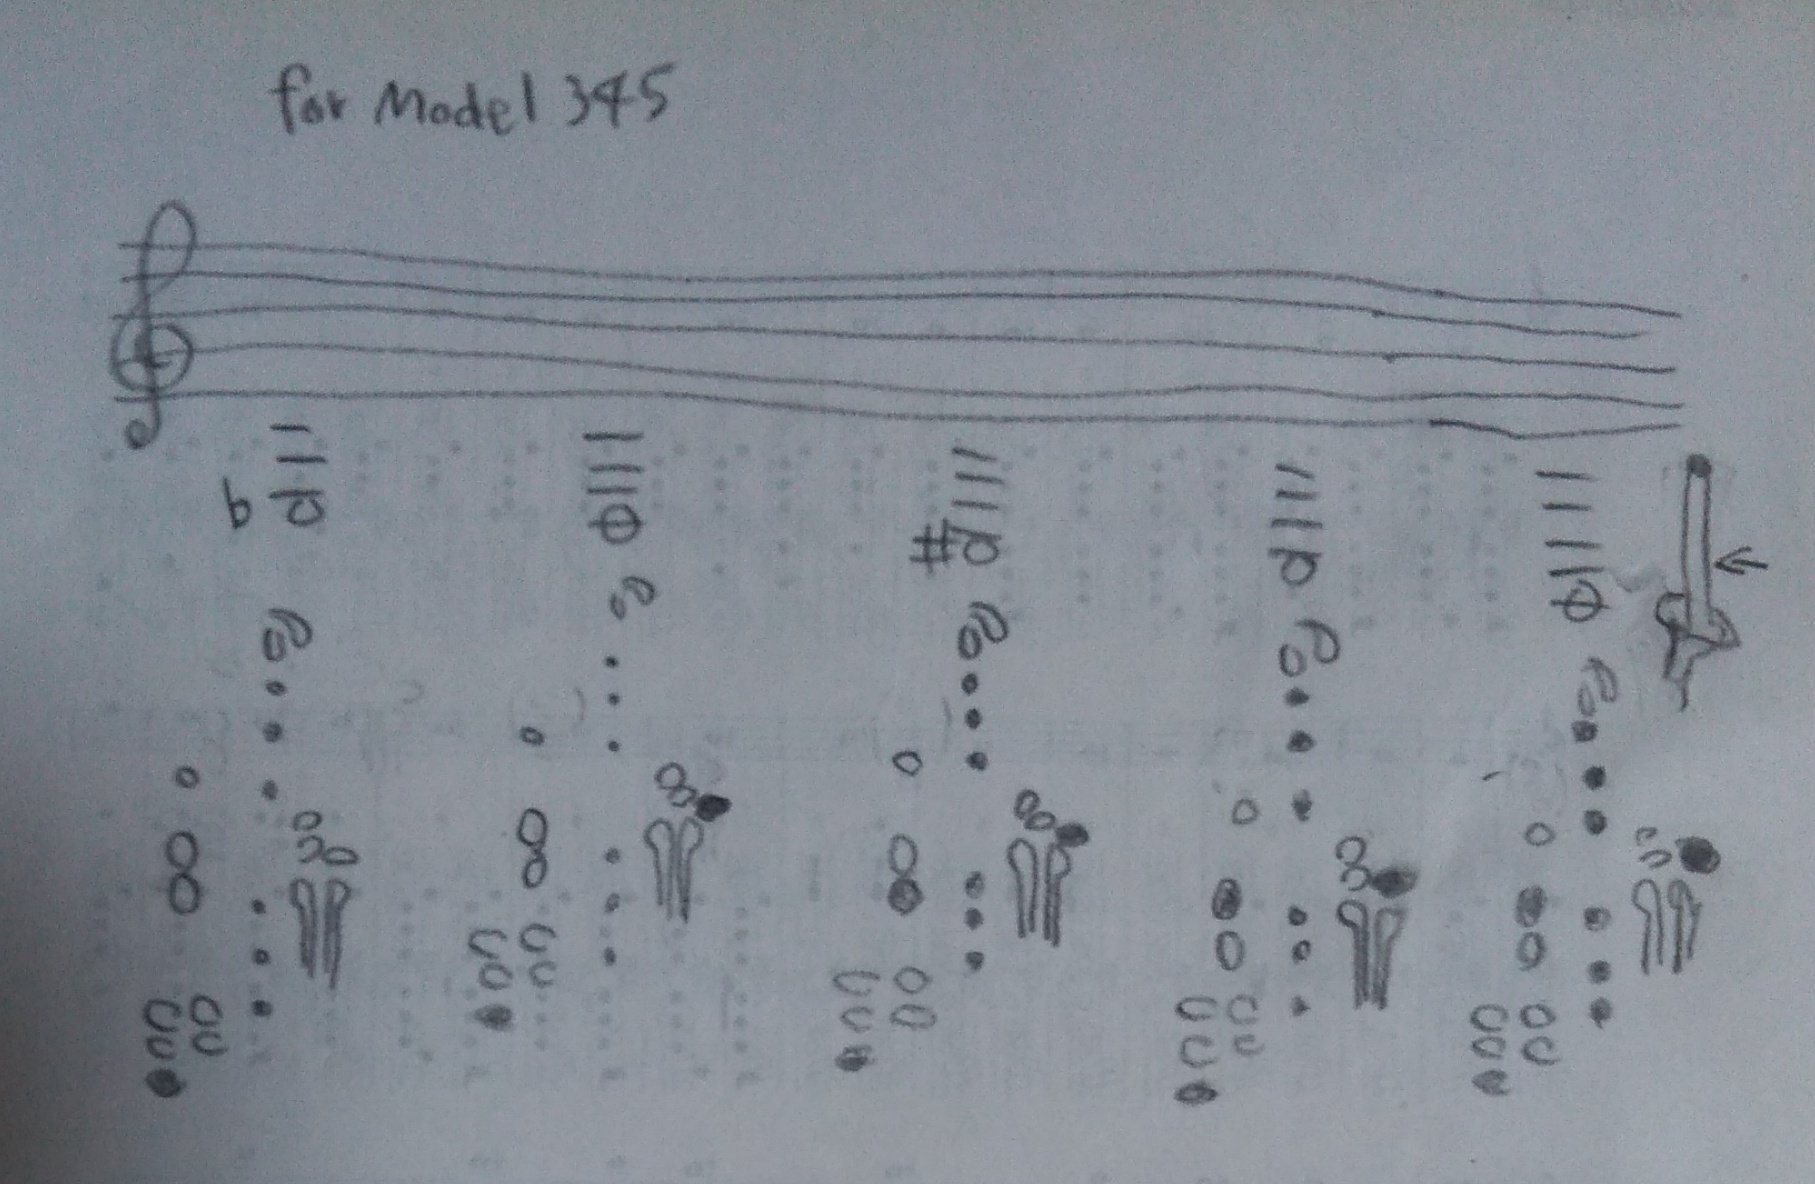 for Model 345